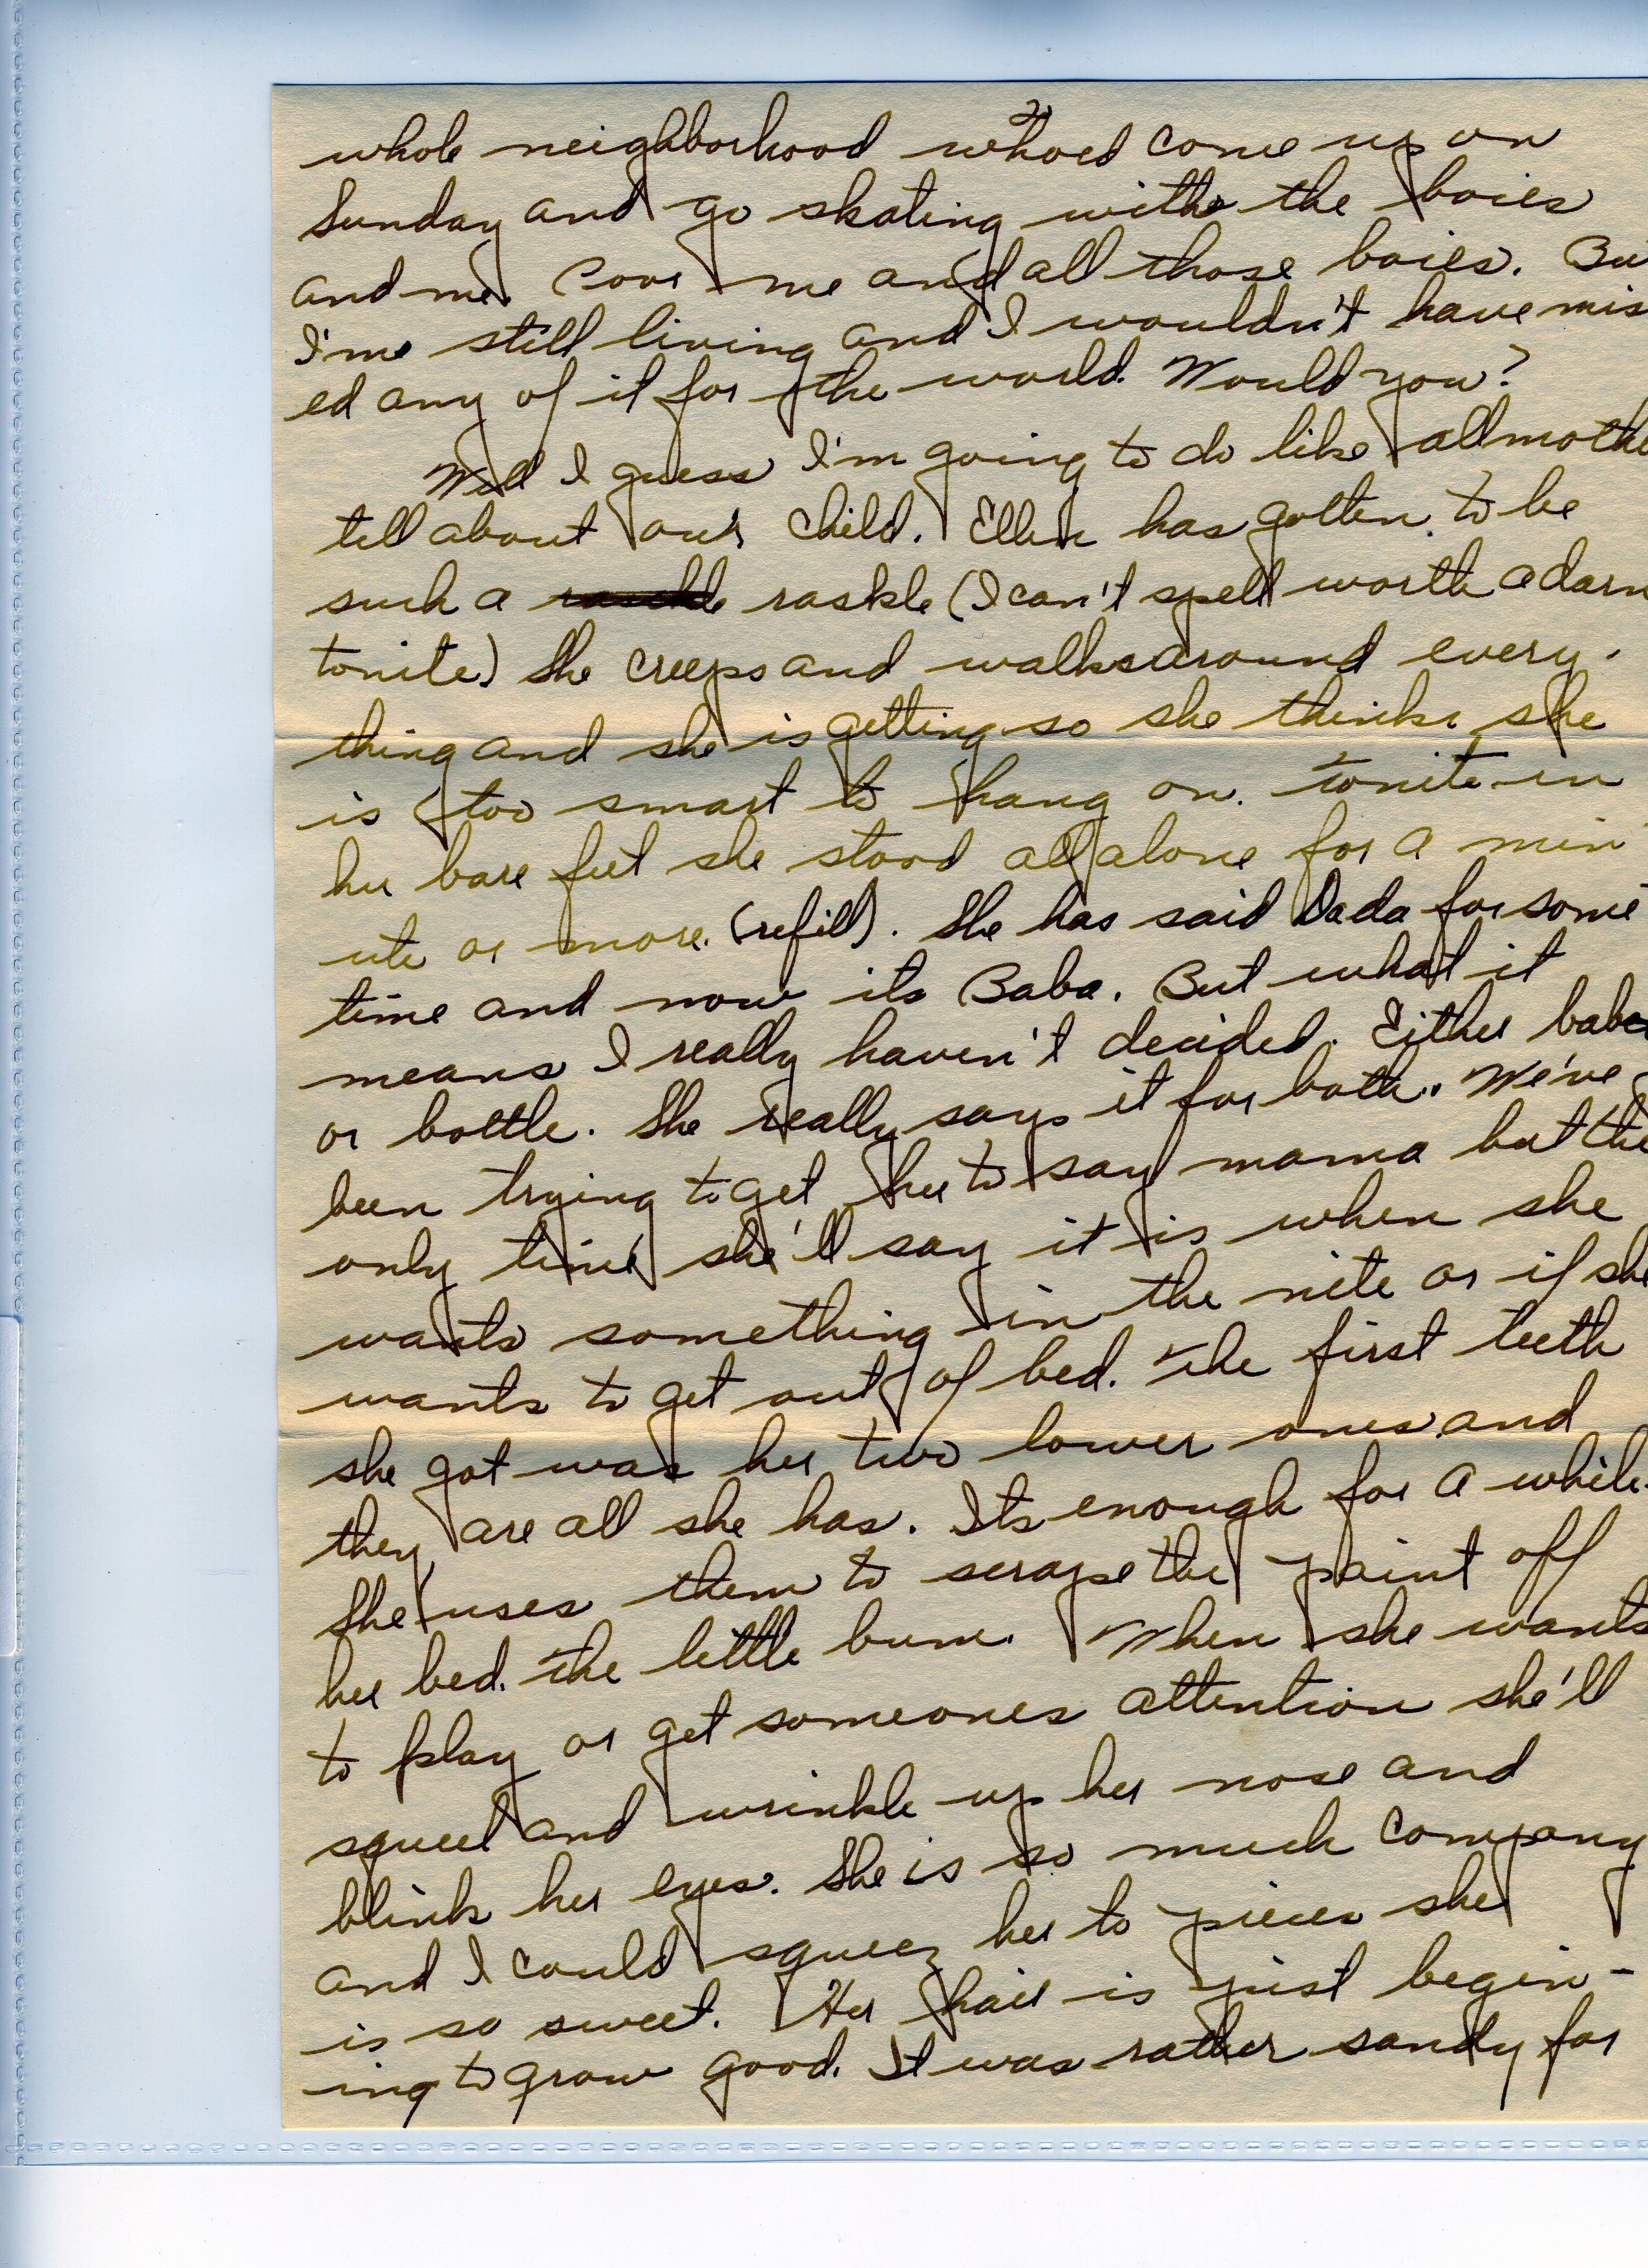 2
whole neighborhood whoed come up on
Sunday and go skating with the boies
and me. Poor me and all those boies. Bu
I'me still living and I wouldn't have mis
ed any of it for the world. Would you?
Well I guess I'm going to do like all mothe
tell about our child. Ellen has gotten to be
such a raskle (I can't spell worth a darn
tonite) She creeps and walks around every-
thing and she is getting so she thinks she
is too smart to hang on. tonite in
her bare feet she stood all alone for a min
ute or more. (refill). She has said Dada for some
time and now its Baba. But what it
means I really haven't decided. Either babe
or bottle. She really says it for both. We've
been trying to get her to say mama but the
only time she'll say it is when she
wants something in the nite or if she
wants to get out of bed. The first teeth
she got was her two lower ones and
they are all she has. Its enough for a while.
She uses them to scrape the paint off
her bed. the little bum. When she wants
to play or get someones attention she'll
squeel and wrinkle up her nose and
blink her eyes. She is so much company
and I could squeez her to pieces she
is so sweet. Her hair is just begin-
ing to grow good. It was rather sandy for